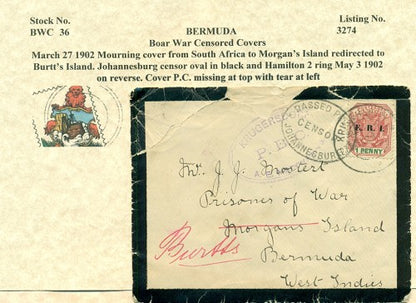 Stock No.
BWC 36
BERMUDA
Listing No.
3274
Boar War Censored Covers
March 27 1902 Mourning cover from South Africa to Morgan's Island redirected to
Burtt's Island. Johannesburg censor oval in black and Hamilton 2 ring May 3 1902
on reverse. Cover P.C. missing at top with tear at left
PASSED
CENSOR
JOHANNESBURG
E. R. I.
1 PENNY
Mr. J. J. Mostert
Prisoner of War
Morgans Island
Burtts
Bermuda
West Indies